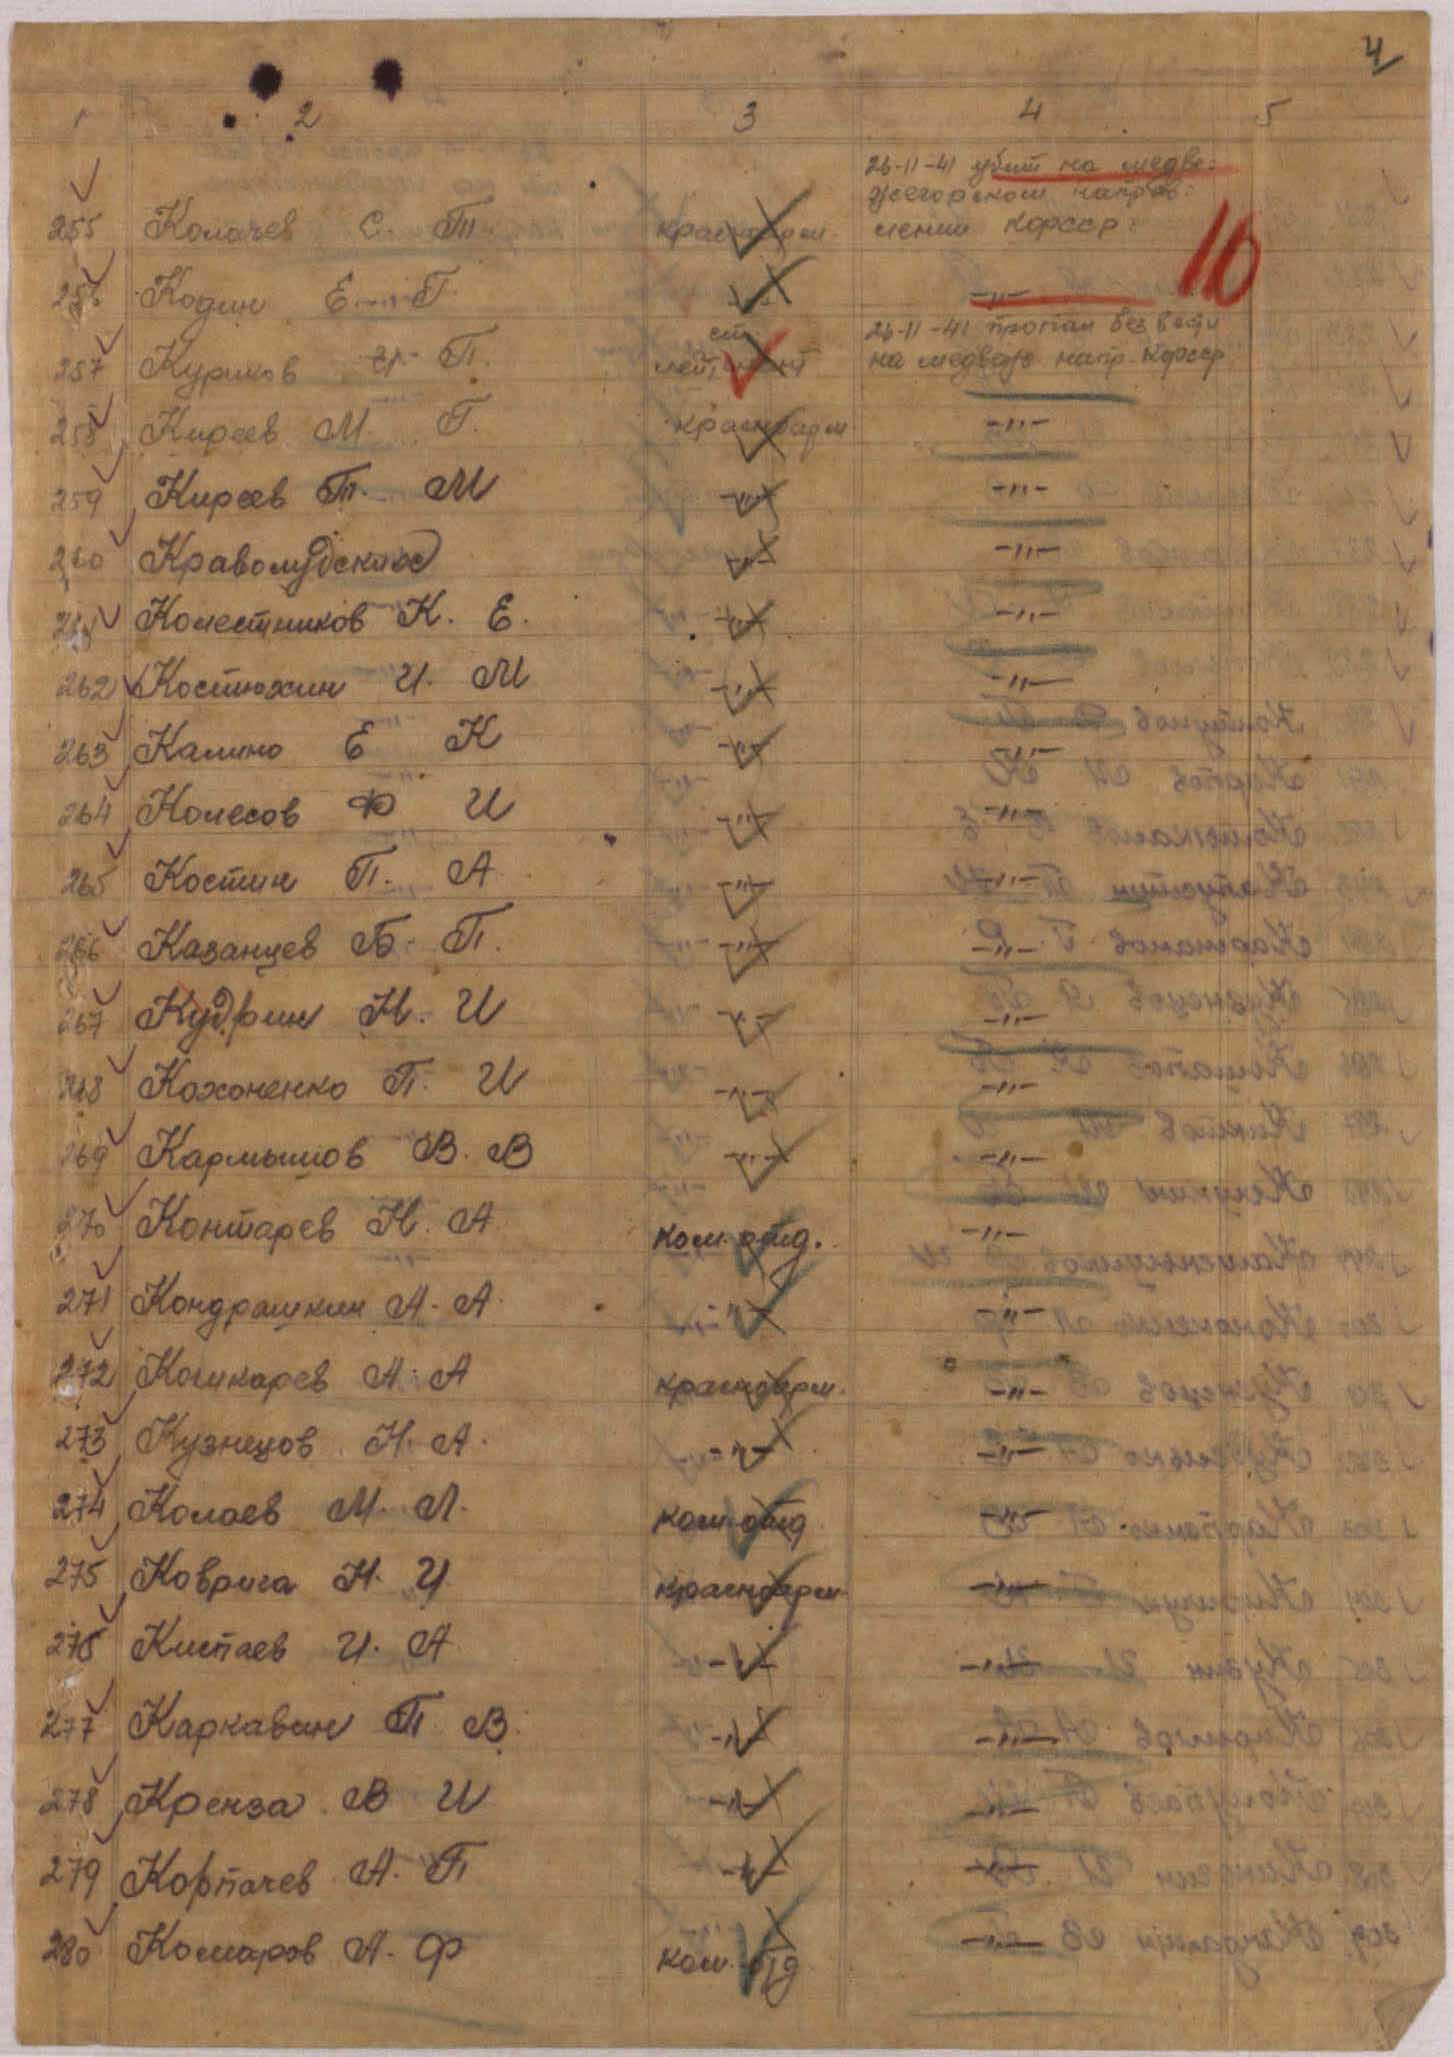 4
1 2 3 4 5
26-11-41 убит на медве-
жьегорском направ-
255 Колачев С. П. красноарм. лении Кфсср.
256 Кодин Е. Г. -"- -"-
ст. 26-11-41 пропал без вести
257 Куриков П. лейтенант на медвеж напр. Кфсср
10
258 Киреев М. Г. красноарм -"-
259 Киреев П. М -"- -"-
260 -"- -"-
261 Колестников К. Е. -"- -"-
262 Костюхин И. М -"- -"-
263 Калино Е К -"- -"-
264 Колесов Ф И -"- -"-
265 Костин П. А -"- -"-
266 Казанцев Б. П. -"- -"-
267 Кудрин Н. И -"- -"-
268 Кохоненко П. И -"- -"-
269 Кармышов В. В -"- -"-
270 Контарев Н. А ком. отд. -"-
271 Кондрашкин А. А -"- -"-
272 Кошкарев А. А красноарм. -"-
273 Кузнецов Н. А. -"- -"-
274 Колоев М. Л. ком. отд -"-
275 Коврига Н. И красноарм -"-
276 Кистаев И. А -"- -"-
277 Каркавин П В. -"- -"-
278 Кренза В И -"- -"-
279 Корпачев А. П -"- -"-
280 Комаров А. Ф ком. отд -"-